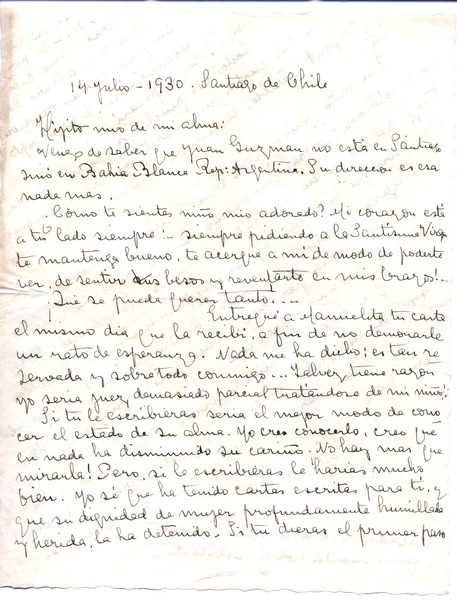 14 Julio - 1930. Santiago de Chile
Hijito mio de mi alma:
Vengo de saber que Juan Guzman no está en Santiago
sinó en Bahia Blanca Rep: Argentina. Su direccion es esa
nada mas.
¿Cómo te sientes niño mio adorado? Mi corazon está
a tu lado siempre! - siempre pidiendo a la Santisima Virgen
te mantenga bueno, te acerque a mi de modo de poderte
ver, de sentir tus besos y reventarto en mis brazos!..
¡Qué se pueda querer tanto!...
Entregué a Manuelita tu carta
el mismo dia que la recibí, a fin de no demorarle
un rato de esperanza. Nada me ha dicho; es tan re
servada y sobretodo conmigo... Talvez tiene razón
yo seria juez demasiado parcial tratándose de mi niño!
Si tu le escribieras seria el mejor modo de cono
cer el estado de su alma. Yo creo conocerlo, creo que
en nada ha disminuido su cariño. No hay mas que
mirarla! Pero, si le escribieras le harias mucho
bien. Yo sé que ha tenido cartas escritas para ti, y
que su dignidad de mujer profundamente humillada
y herida, la ha detenido. Si tu dieras el primer paso